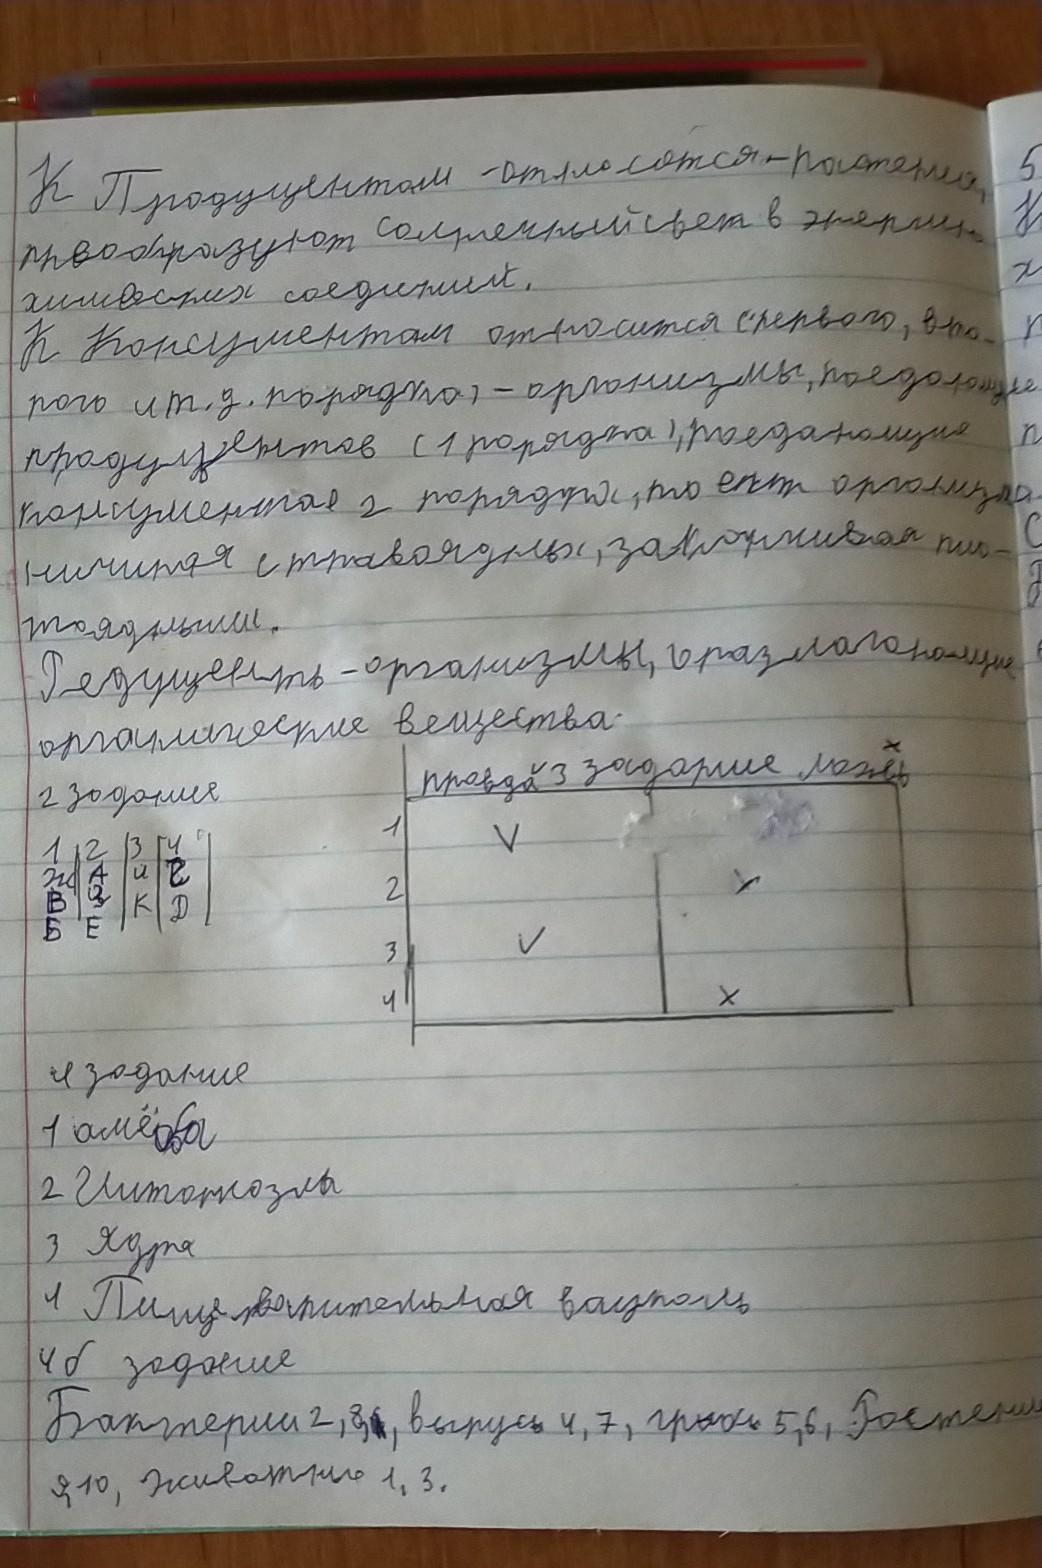 К Продуцентам - относятся - растения,
преобразуют солнечный свет в энергию
соединий.
К Консументам относится (первого, вто-
рого и т.д. порядка) - организмы, поедающие
продуцентов (1 порядка), поедающие
консументов 2 порядка, то ект организма
ничиная с травоядных, заканчивая пло-
тоядными.
Редуценть - организмы, разлагающие
органические вещества.
2 задание
1 | 2 | 3 | 4
Ж | А | И | С
В | З | К | Д
Б | Е
правда v 3 задание ложь x
1 V
2 x
3 V
4 x
4 задание
1 амёба
2
3 Ядра
4 Пищеварительная вакуоль
4б задание
Бактерии 2, 8, вирусь 4, 7, грибь 5, 6, Ростения
9, 10, живатние 1, 3.
5
К
х
п
п
С